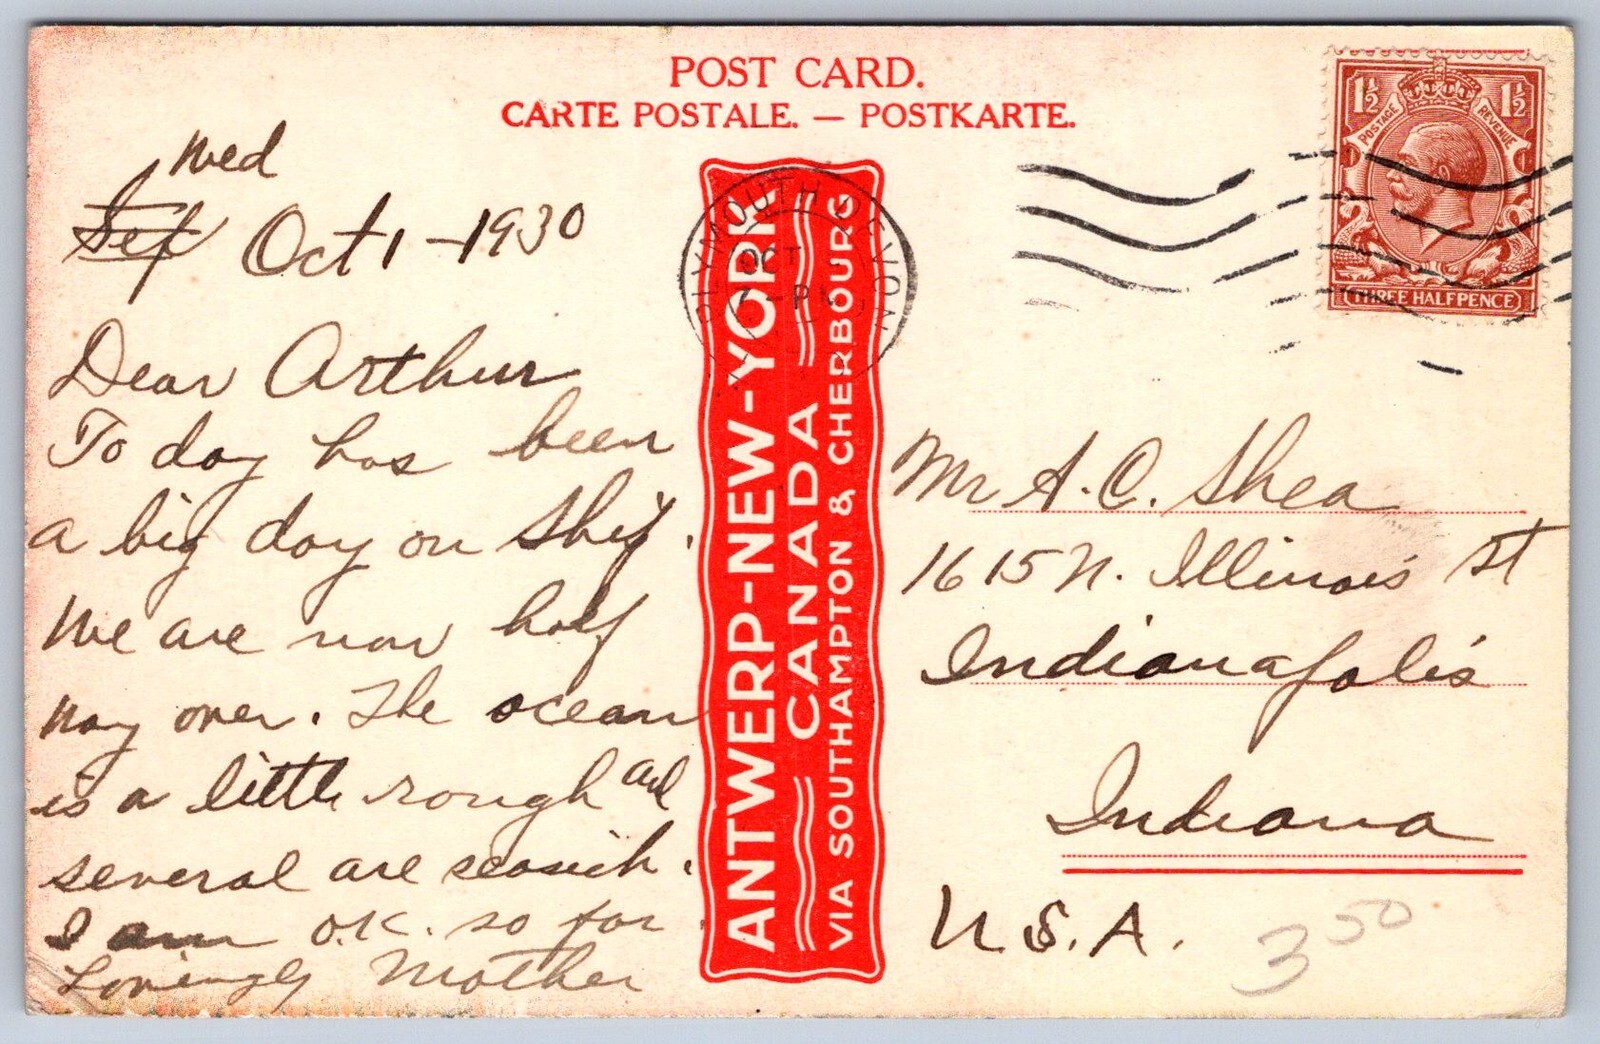 POST CARD.
CARTE POSTALE. — POSTKARTE.
1½ 1½
POSTAGE REVENUE
THREE HALFPENCE
PLYMOUTH DEVON
OCT
7-PM
Wed
Sept Oct 1 - 1930
Dear Arthur
To day has been
a big day on Ship.
We are now half
way over. The ocean
is a little rough and
several are seasick.
I am O.K. so far.
Lovingly Mother
ANTWERP-NEW-YORK
CANADA
VIA SOUTHAMPTON & CHERBOURG
Mr A. C. Shea
1615 N. Illinois St
Indianapolis
Indiana
U.S.A.
3 50